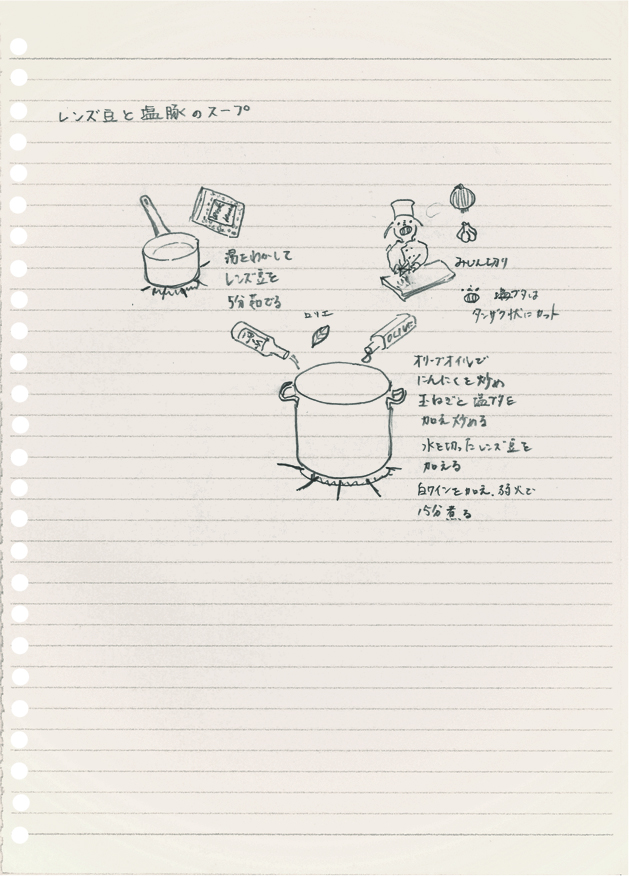 レンズ豆と塩豚のスープ
湯をわかして
レンズ豆を
5分茹でる
みじん切り
塩ブタは
タンザク状にカット
ロリエ
OLIVE
オリーブオイルで
にんにくを炒め
玉ねぎと塩ブタを
加え炒める
水を切ったレンズ豆を
加える
白ワインを加え、弱火で
15分煮る